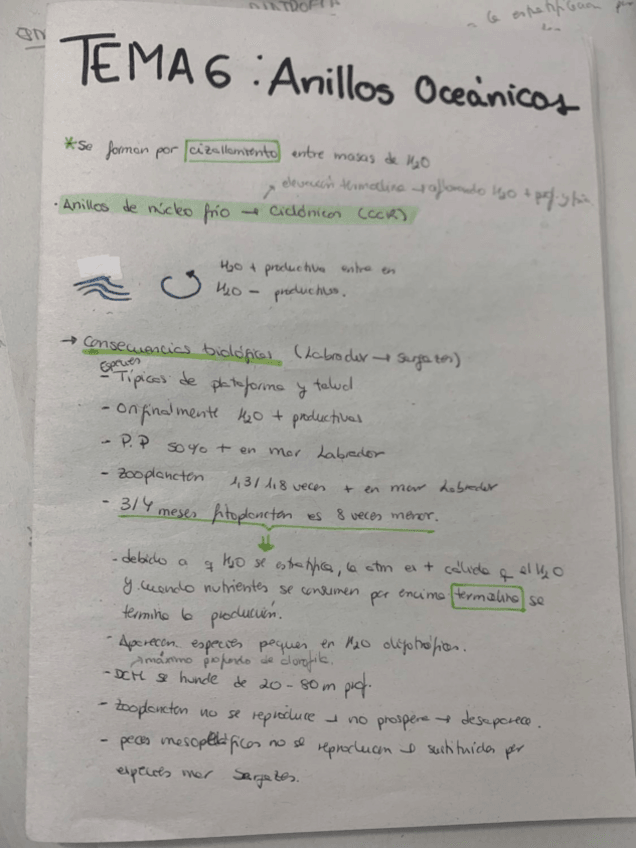 TEMA 6 : Anillos Oceánicos
* Se forman por cizallamiento entre masas de H2O
elevación termoclina → aflorando H2O + prof. y fría
· Anillos de núcleo frío → Ciclónicos (CCR)
H2O + productiva entra en
H2O - productivas.
→ Consecuencias biológicas (Labrador → Sargazos)
Especies
- Típicas de plataforma y talud
- Originalmente H2O + productivas
- P.P 50% + en mar Labrador
- Zooplancton 1,3/1,8 veces + en mar Labrador
- 3/4 meses fitoplancton es 8 veces menor.
- debido a q H2O se estratifica, la atm es + cálida q el H2O
y cuando nutrientes se consumen por encima termoclina se
termina la producción.
- Aparecen especies pequeñ en H2O oligotróficas.
máximo profundo de clorofila.
- DCM se hunde de 20-80 m prof.
- Zooplancton no se reproduce → no prospera → desaparece.
- peces mesopelágicos no se reproducen → sustituidos por
especies mar Sargazos.